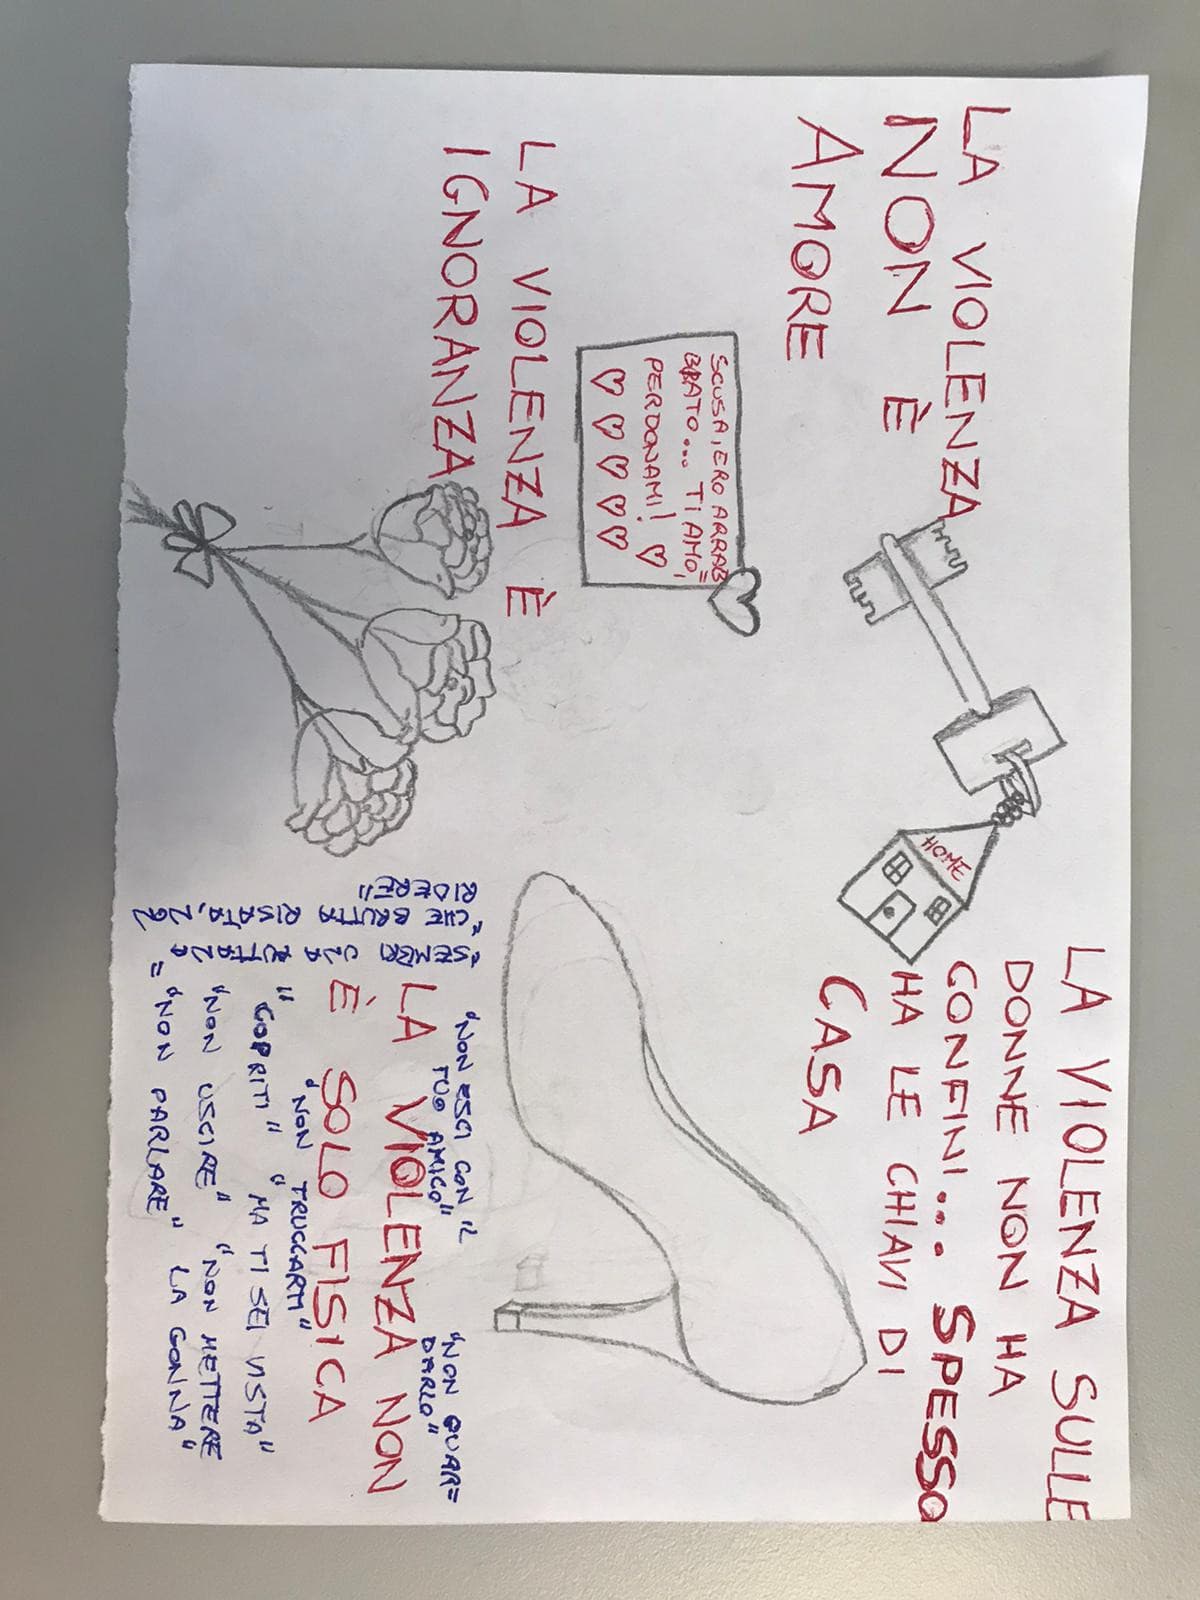 LA VIOLENZA
NON È
AMORE
HOME
LA VIOLENZA SULLE
DONNE NON HA
CONFINI... SPESSO
HA LE CHIAVI DI
CASA
SCUSA, ERO ARRAB=
BIATO... TI AMO,
PERDONAMI! ♡
♡ ♡ ♡ ♡ ♡
LA VIOLENZA È
IGNORANZA
"NON ESCI CON IL
TUO AMICO"
"NON GUAR=
DARLO"
LA VIOLENZA NON
È SOLO FISICA
"NON TRUCCARTI"
"COPRITI" "MA TI SEI VISTA"
"NON USCIRE" "NON METTERE
LA GONNA"
"NON PARLARE"
"CHE BRUTTA RISATA,
RIDERE"
"SEMBRI PUTTANA"